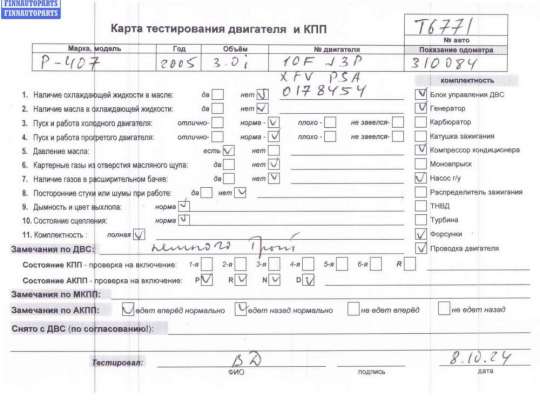 FINNAUTOPARTS
FINNAUTOPARTS
Карта тестирования двигателя и КПП
Т6771
№ авто
Марка, модель Год Объём № двигателя Показание одометра
P-407 2005 3.0i 10F J3P 310084
XFV PSA
0178454
комплектность
1. Наличие охлаждающей жидкости в масле: да нет Блок управления ДВС
2. Наличие масла в охлаждающей жидкости: да нет Генератор
3. Пуск и работа холодного двигателя: отлично- норма - плохо - не завелся- Карбюратор
4. Пуск и работа прогретого двигателя: отлично- норма - плохо - не завелся- Катушка зажигания
5. Давление масла: есть нет Компрессор кондиционера
6. Картерные газы из отверстия масляного щупа: да нет Моновпрыск
7. Наличие газов в расширительном бачке: да нет Насос г/у
8. Посторонние стуки или шумы при работе: да нет Распределитель зажигания
9. Дымность и цвет выхлопа: норма ТНВД
10. Состояние сцепления: норма Турбина
11. Комплектность : полная Форсунки
Замечания по ДВС: немного Проводка двигателя
Состояние КПП - проверка на включение: 1-я 2-я 3-я 4-я 5-я 6-я R
Состояние АКПП - проверка на включение: P R N D
Замечания по МКПП:
Замечания по АКПП: едет вперёд нормально едет назад нормально не едет вперёд не едет назад
Снято с ДВС (по согласованию!):
Тестировал: ВД 8.10.24
ФИО подпись дата